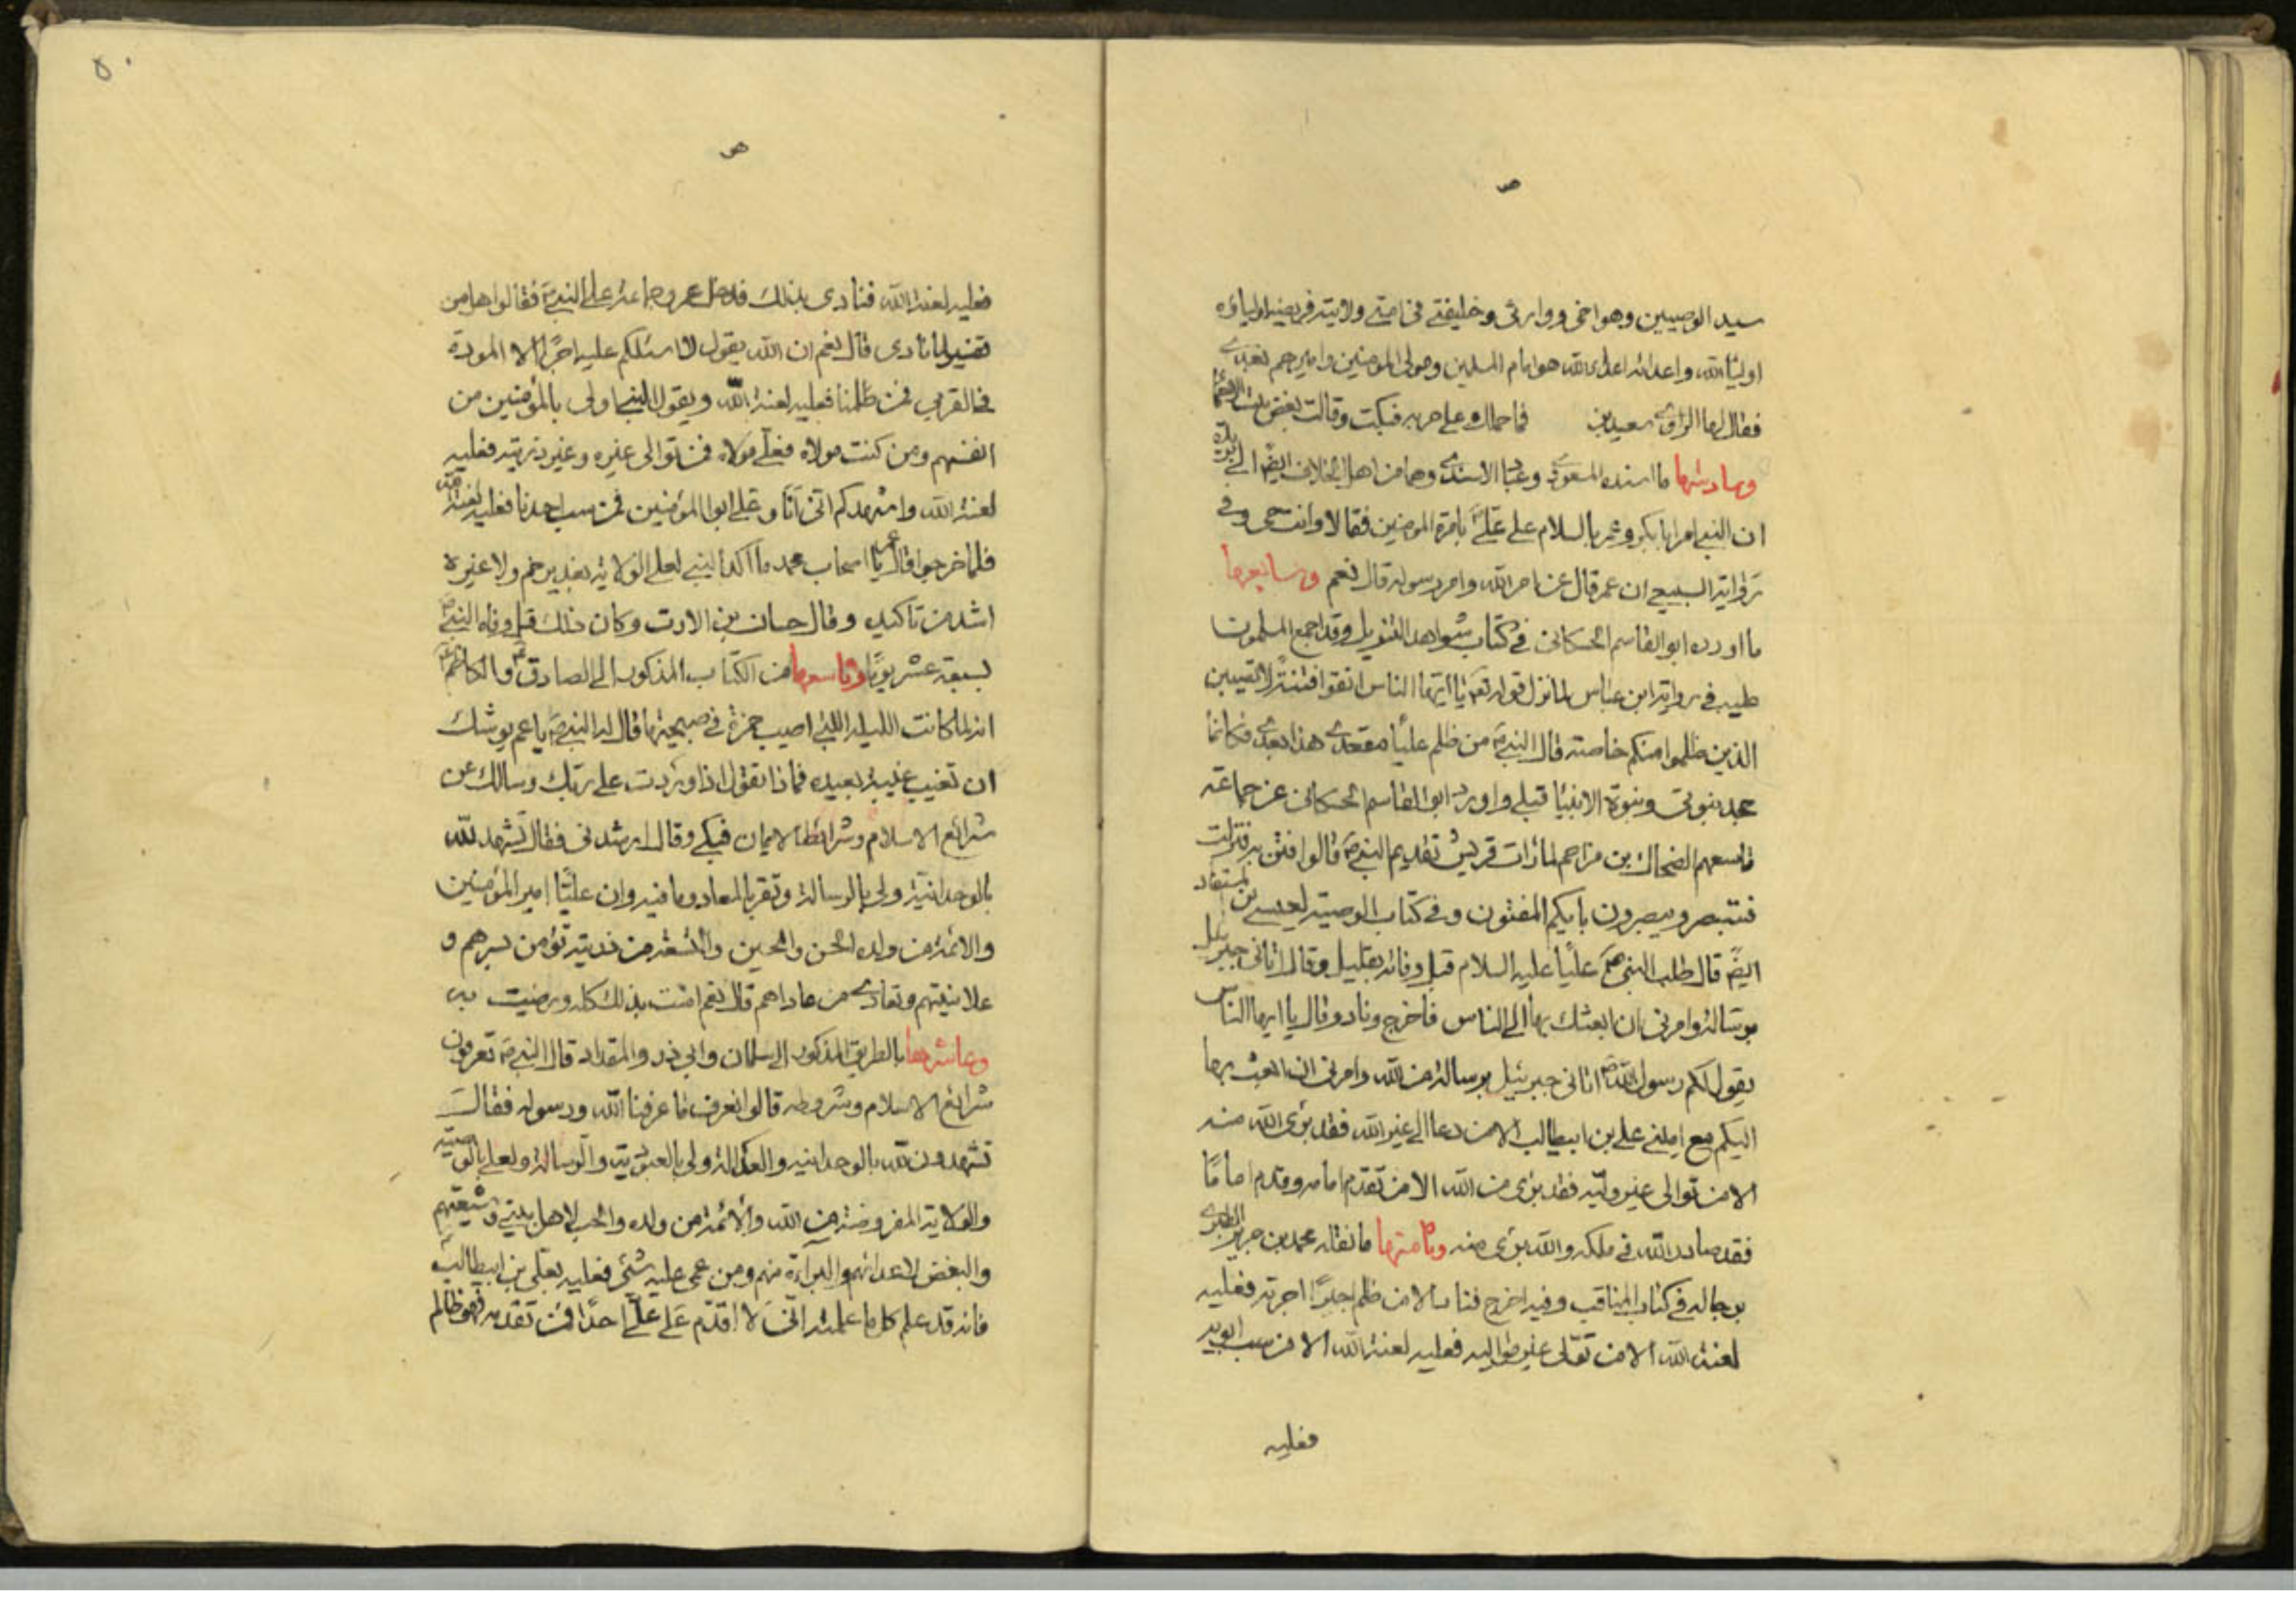 ص
سيد الوصيين وهو اخي ووارثي وخليفتي في امتي ولايته فريضة اولياؤه
اولياء الله واعدائه اعداء الله هو امام المسلمين ومولى المومنين واميرهم بعدي
فقال لها الراوي سعيد بن فما حملك وعلى حربه فبكت وقالت بغض
وسادسها ما اسنده المسعودي وعباد الاسدي وهما من اهل الخلاف ايضا الى بريدة
ان النبي امر ابا بكر وعمر بالسلام على علي بامرة المومنين فقالا وانت حي وفي
رواية السبيعي ان عمر قال عن امر الله وامر رسوله قال نعم وسابعها
ما اورده ابو القاسم الحسكاني في كتاب شواهد التنزيل وقد اجمع المسلمون
في رواية ابن عباس لما نزل قوله تعم يا ايها الناس اتقوا فتنة لا تصيبن
الذين ظلموا منكم خاصة قال النبي من ظلم عليا مقعدي هذا بعدي فكانما
جحد بنبوتي ونبوة الانبيا قبلي واورد ابو القاسم الحسكاني عن جماعة
تاسعهم الضحاك بن مزاحم لما رات قريش تقديم النبي قالوا فتن به فنزلت
فستبصر ويبصرون بايكم المفتون وفي كتاب الوصية لعيسى بن المستفاد
ايضا قال طلب النبي عليا عليه السلام قبل وفاته بقليل وقال اتاني جبرئيل
برسالة وامرني ان ابعثك بها الى الناس فاخرج وناد وقال يا ايها الناس
يقول لكم رسول الله اتاني جبرئيل برسالة من الله وامرني ان ابعث بها
اليكم مع اميني علي بن ابيطالب الا من دعا الى غير الله فقد برئ الله منه
الا من توالى غير وليه فقد برئ من الله الا من تقدم امامه وقدم اماما
فقد صاد الله في ملكه والله برئ منه وثامنها ما نقله محمد بن جرير الطبري
برجاله في كتاب المناقب وفيه اخرج فناد الا من ظلم اجيرا اجرته فعليه
لعنة الله الا من تولى غير مواليه فعليه لعنة الله الا من سب ابويه
فعليه
٥٠
ص
فعليه لعنة الله فنادى بذلك فدخل عمر وجماعة على النبي فقالوا هل من
تفسير لما نادى قال نعم ان الله يقول لا اسئلكم عليه اجرا الا المودة
في القربى فمن ظلمنا فعليه لعنة الله ويقول النبي اولى بالمؤمنين من
انفسهم ومن كنت مولاه فعلي مولاه فمن توالى غيره وغير ذريته فعليه
لعنة الله واشهدكم اني انا وعلي ابوا المؤمنين فمن سب احدنا فعليه لعنة الله
فلما خرجوا قال عمر يا اصحاب محمد ما اكد النبي لعلي الولاية بغدير خم ولا غيره
اشد من تاكيده وقال حسان بن الارت وكان ذلك قبل وفاة النبي
بسبعة عشر يوما وتاسعها من الكتاب المذكور الى الصادق والكاظم
انه لما كانت الليلة اللتي اصيب حمزة في صبيحتها قال له النبي يا عم يوشك
ان تغيب غيبة بعيده فماذا تقول اذا وردت على ربك وسالك عن
شرائع الاسلام وشرائط الايمان فبكى وقال ارشدني فقال تشهد لله
بالوحدانية ولي بالرسالة وتقر بالمعاد وما فيه وان عليا امير المؤمنين
والائمة من ولده الحسن والحسين والتسعة من ذريته تؤمن بسرهم و
علانيتهم وتعادي من عاداهم قال نعم امنت بذلك كله ورضيت به
وعاشرها بالطريق المذكور الى سلمان وابي ذر والمقداد قال النبي تعرفون
شرائع الاسلام وشروطه قالوا نعرف ما عرفنا الله ورسوله فقال
تشهدون لله بالوحدانيه والعدالة ولي بالعبودية والرسالة ولعلي بالوصية
والولاية المفروضة من الله والائمة من ولده والحب لاهل بيتي وشيعتهم
والبغض لاعدائهم والبرآءة منهم ومن عمى عليه شيء فعليه بعلي بن ابيطالب
فانه قد علم كل ما علمته اني لا اقدم على علي احدا فمن تقدمه فهو ظالم